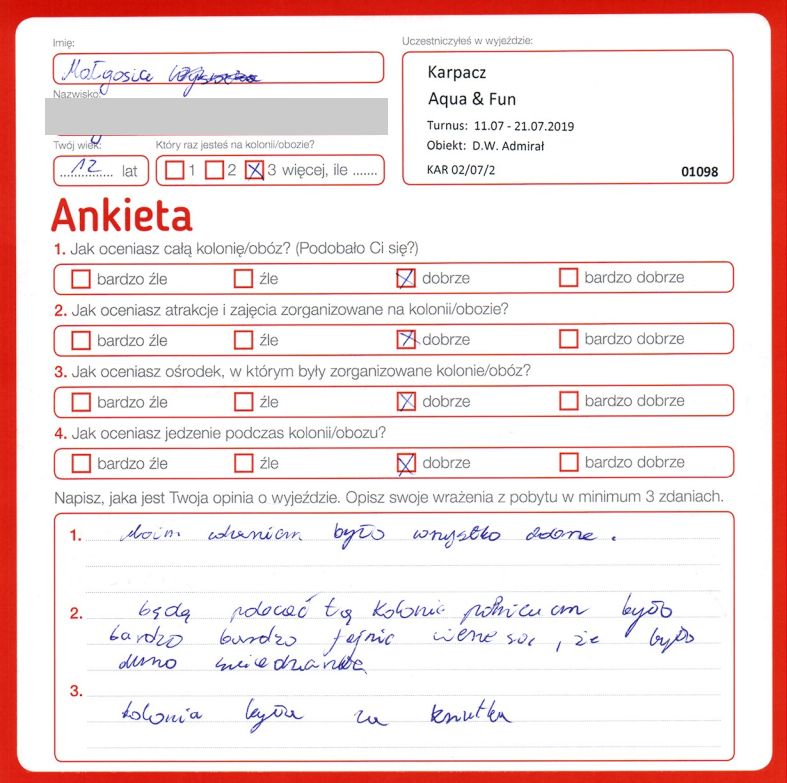 Imię:
Uczestniczyłeś w wyjeździe:
Małgosia
Karpacz
Nazwisko:
Aqua & Fun
Turnus: 11.07 - 21.07.2019
Twój wiek:
Który raz jesteś na kolonii/obozie?
Obiekt: D.W. Admirał
12 lat
1 2 3 więcej, ile .......
KAR 02/07/2
01098
Ankieta
1. Jak oceniasz całą kolonię/obóz? (Podobało Ci się?)
bardzo źle źle dobrze bardzo dobrze
2. Jak oceniasz atrakcje i zajęcia zorganizowane na kolonii/obozie?
bardzo źle źle dobrze bardzo dobrze
3. Jak oceniasz ośrodek, w którym były zorganizowane kolonie/obóz?
bardzo źle źle dobrze bardzo dobrze
4. Jak oceniasz jedzenie podczas kolonii/obozu?
bardzo źle źle dobrze bardzo dobrze
Napisz, jaka jest Twoja opinia o wyjeździe. Opisz swoje wrażenia z pobytu w minimum 3 zdaniach.
1. moim było wszystko .
2. będę tą kolonie było
bardzo bardzo fajnie , że było
3.
kolonia była za krutka